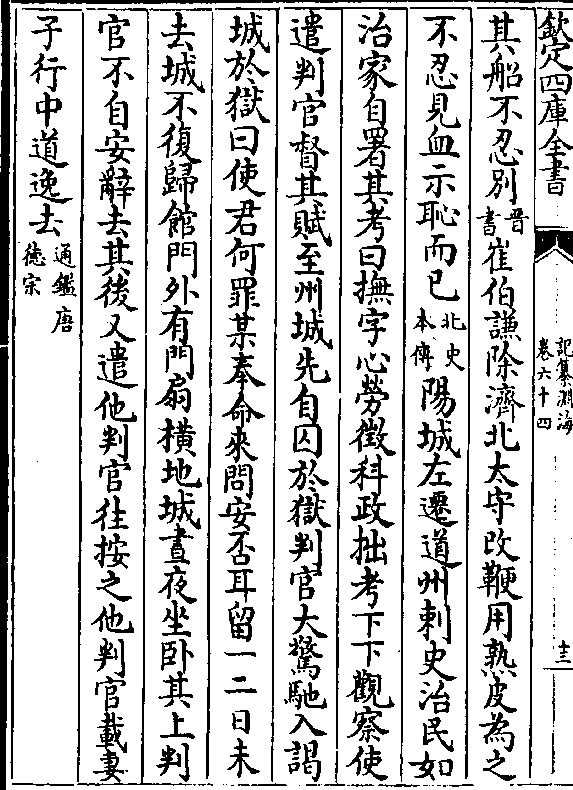 欽定四庫全書
記纂淵海
卷六十四
十三
其船不忍別晉書崔伯謙除濟北太守改鞭用熟皮為之
不忍見血示恥而已北史本傳陽城左遷道州刺史治民如
治家自署其考曰撫字心勞徵科政拙考下下觀察使
遣判官督其賦至州城先自囚於獄判官大驚馳入謁
城於獄曰使君何罪某奉命來問安否耳留一二日未
去城不復歸館門外有門扇橫地城晝夜坐卧其上判
官不自安辭去其後又遣他判官往按之他判官載妻
子行中道逸去通鑑唐德宗